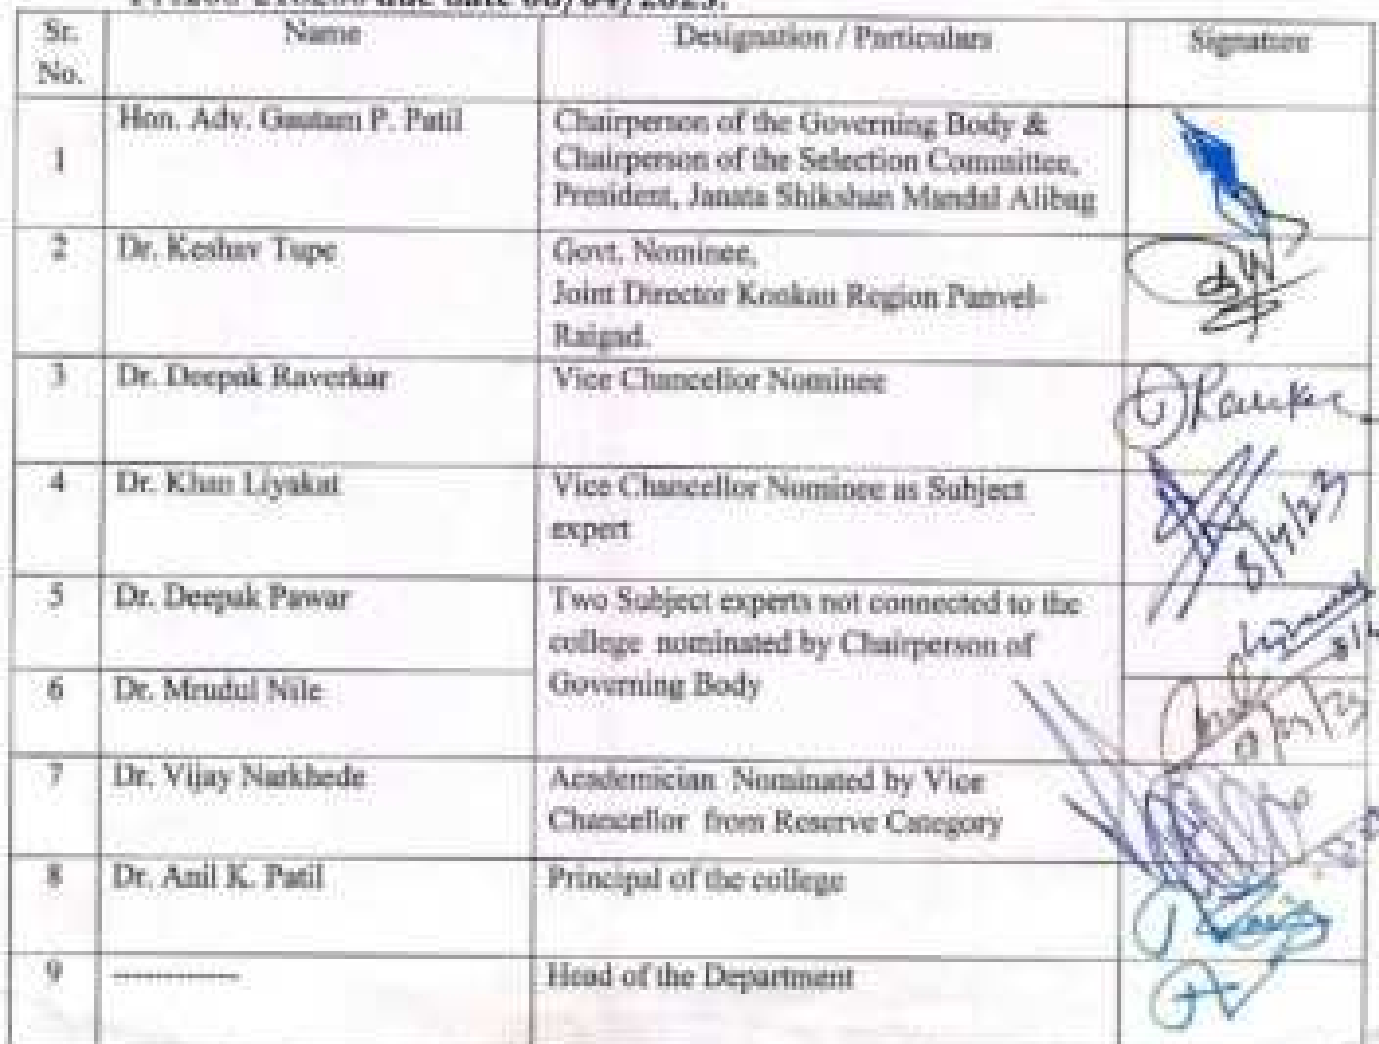 due date 08/04/2023.
Sr. No. Name Designation / Particulars Signature
1 Hon. Adv. Gautam P. Patil Chairperson of the Governing Body &
Chairperson of the Selection Committee,
President, Janata Shikshan Mandal Alibag
2 Dr. Keshav Tupe Govt. Nominee,
Joint Director Konkan Region Panvel-
Raigad.
3 Dr. Deepak Raverkar Vice Chancellor Nominee
4 Dr. Khan Liyakat Vice Chancellor Nominee as Subject
expert
8/4/23
5 Dr. Deepak Pawar Two Subject experts not connected to the
college nominated by Chairperson of
Governing Body
6 Dr. Mrudul Nile
7 Dr. Vijay Narkhede Academician Nominated by Vice
Chancellor from Reserve Category
8 Dr. Anil K. Patil Principal of the college
9 ------------ Head of the Department